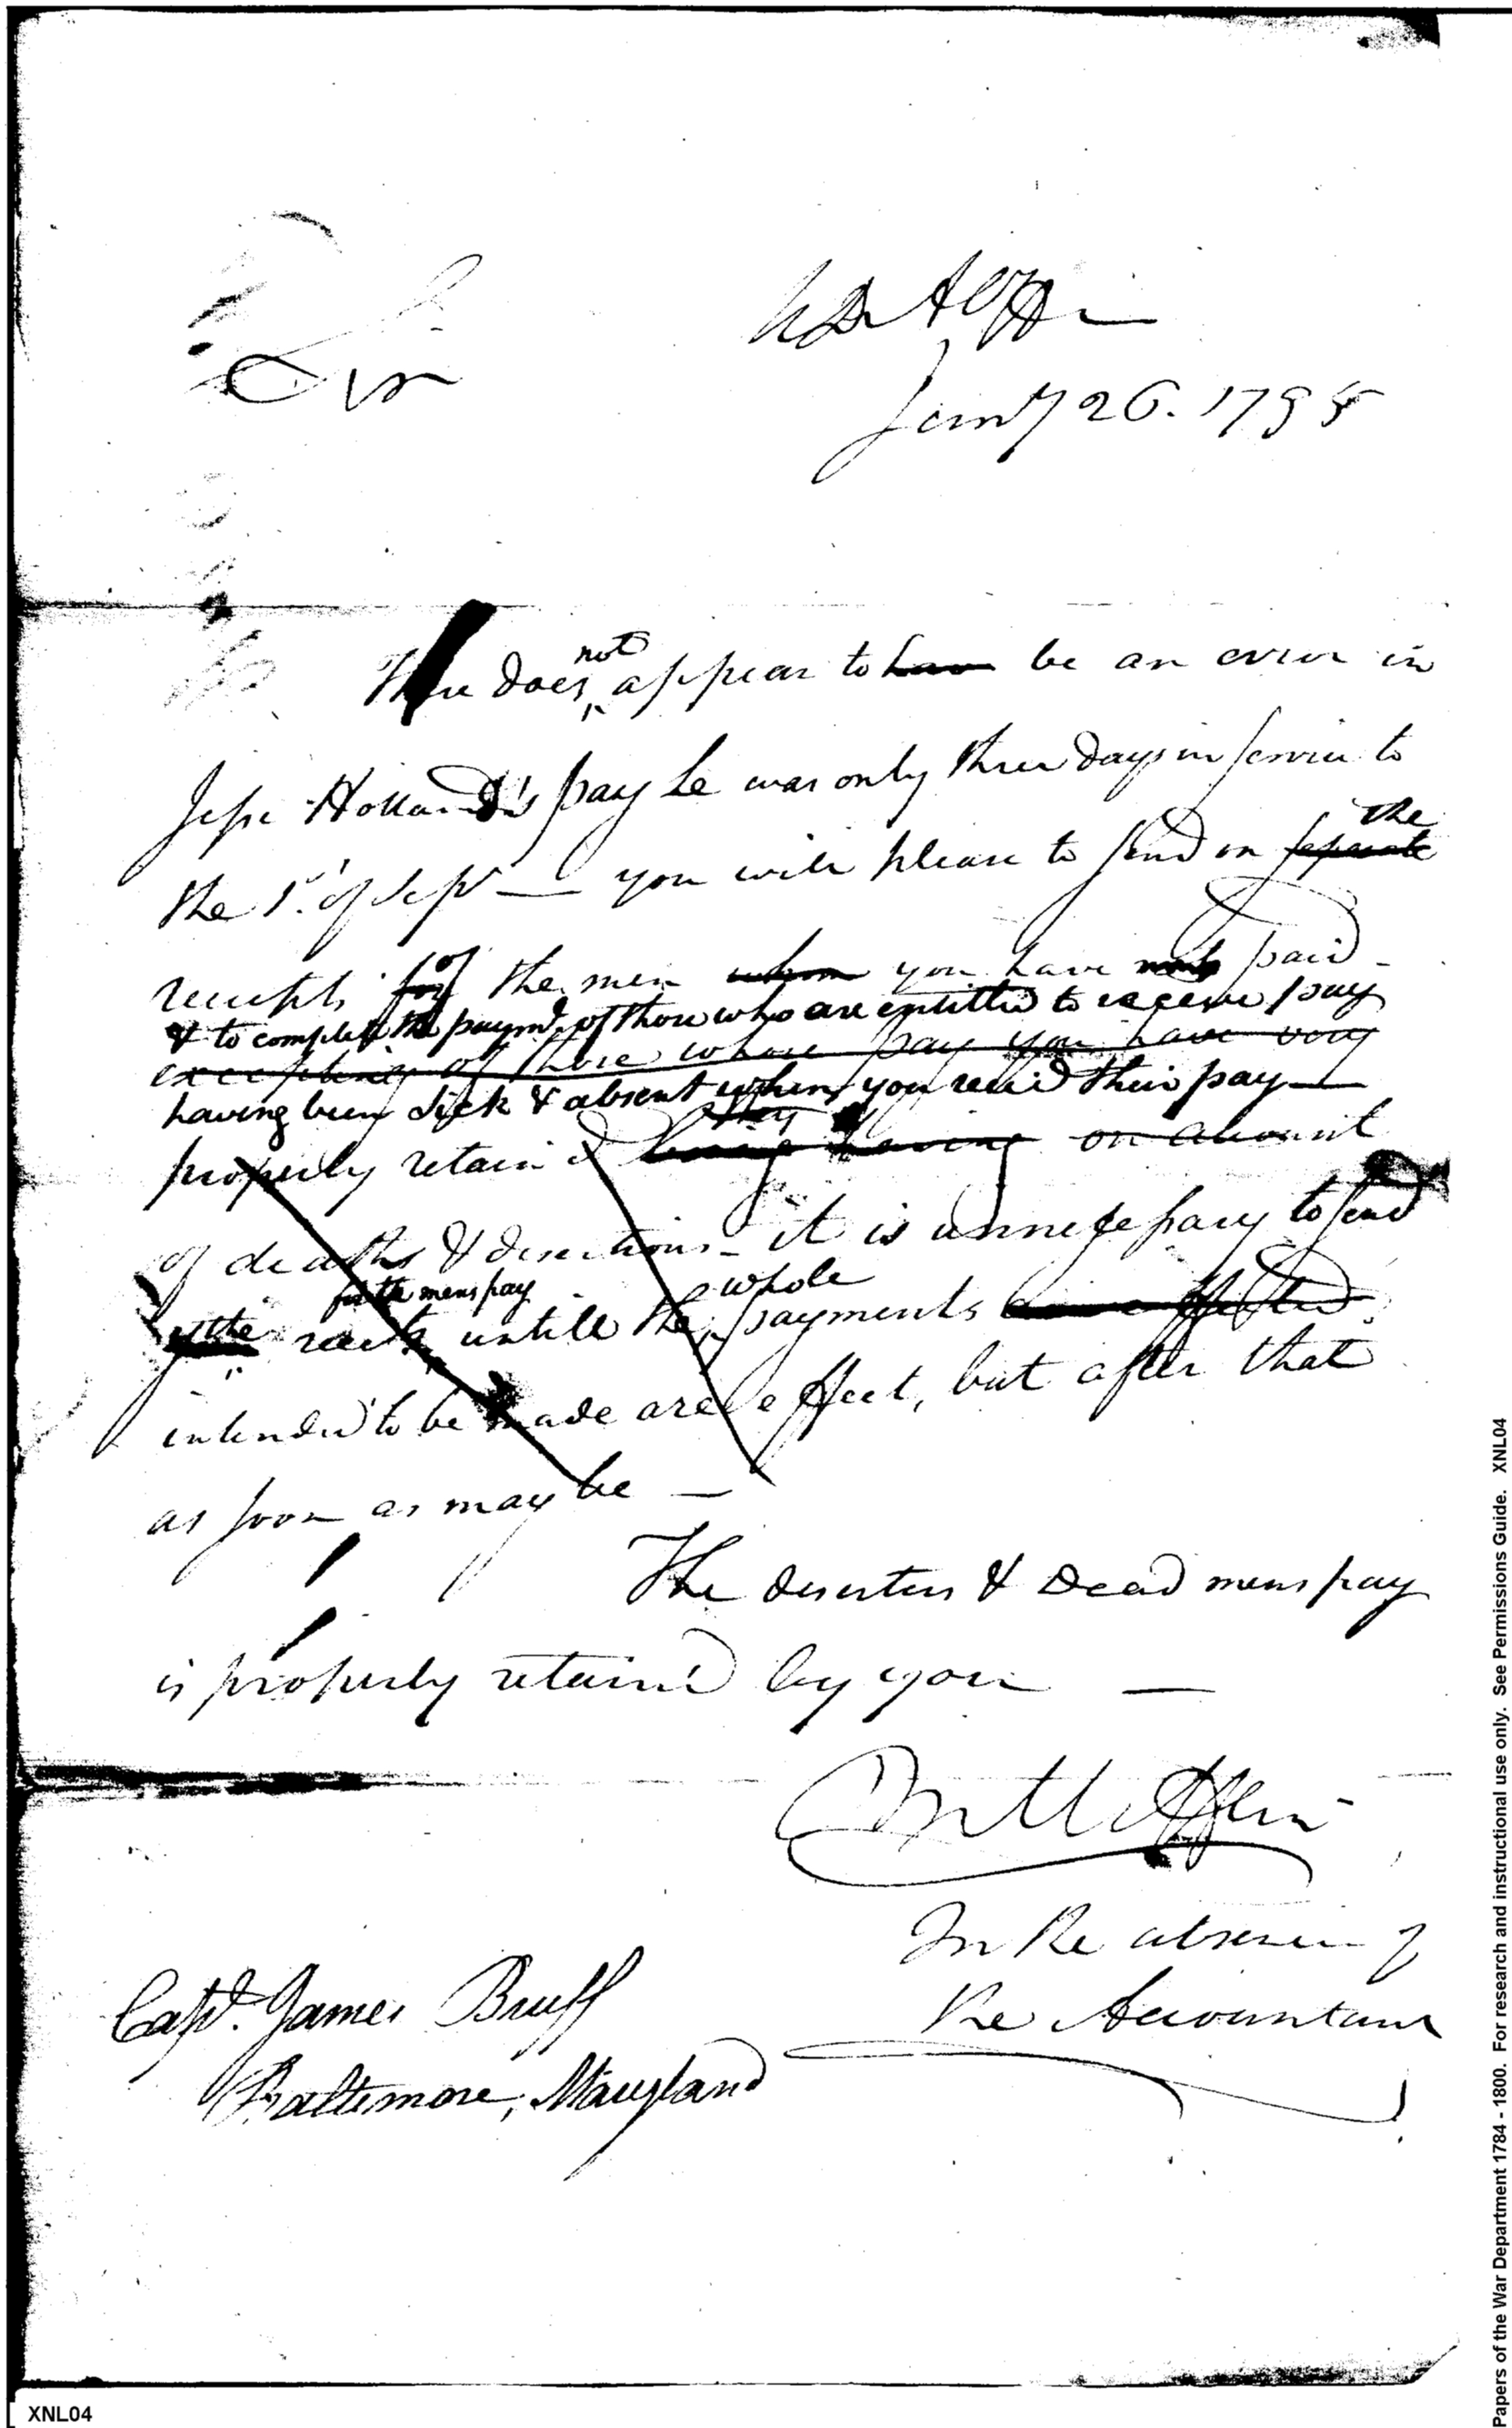 Sir
Jany 26. 1795
There does not appear to have be an error in
Jesse Holland's pay he was only three days in service to
the 1st of Sept — you will please to send on separate the
receipts for of the men whom you have not paid –
& to complete the paymt. of those who are entitled to receive pay
excepting of those whose pay you have very
having been sick & absent when you recd their pay —
properly retain'd they being having on account
of deaths & desertions – it is unnecessary to send
the rects for the mens pay untill the whole payments are effected
intended to be made are effect, but after that
as soon as may be —
The deserters & Dead mens pay
is properly retain'd by you —
In the absence of
the Accountant
Capt. James Bruff
Baltimore, Maryland
XNL04
Papers of the War Department 1784 - 1800. For research and instructional use only. See Permissions Guide. XNL04